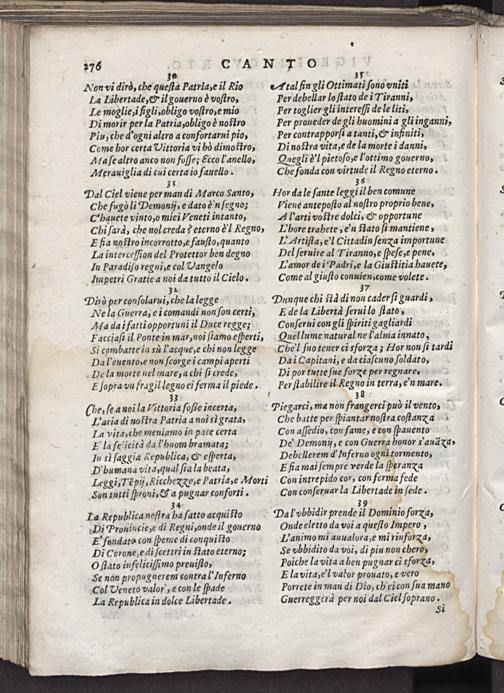 276
CANTO
30
Non vi dirò, che questa Patria, e il Rio
La Libertade, & il gouerno è vostro,
Le moglie, i figli, obligo vostro, e mio
Di morir per la Patria, obligo è nostro
Piu, che d'ogni altro a confortarui pio,
Come hor certa Vittoria vi hò dimostro,
Ma se altro anco non fosse; Ecco l'anello,
Merauiglia di cui certa io fauello.
31
Dal Ciel viene per man di Marco Santo,
Che fugò li Demonij, e dato è'n segno;
C'hauete vinto, o miei Veneti intanto,
Chi sarà, che nol creda? eterno è'l Regno,
E fia nostro incorrotto, e fausto, quanto
La intercession del Protettor ben degno
In Paradiso regni, e col Vangelo
Impetri Gratie a noi da tutto il Cielo.
32
Dirò per consolarui, che la legge
Ne la Guerra, e i comandi non son certi,
Ma da i fatti opportuni il Duce regge;
Facciasi il Ponte in mar, noi siamo esperti,
Si combatte in sù l'acque, e chi non legge
Da l'euento, e non scorge i campi aperti
De la morte nel mare, a chi si crede,
E sopra vn fragil legno ei ferma il piede.
33
Che, se a noi la Vittoria fosse incerta,
L'aria di nostra Patria a noi sì grata,
La vita, che meniamo in pace certa
E la felicità da l'huom bramata;
In sì saggia Republica, & esperta,
D'humana vita, qual sia la beata,
Leggi, Tẽpij, Ricchezze, e Patria, e Morti
Son tutti sproni, & a pugnar conforti.
34
La Republica nostra ha fatto acquisto
Di Prouincie, e di Regni, onde il gouerno
E' fondato con speme di conquisto
Di Corone, e di scettri in stato eterno;
O stato infelicissimo preuisto,
Se non propugnerem contra l'Inferno
Col Veneto valor, e con le spade
La Republica in dolce Libertade.
35
A tal fin gli Ottimati sono vniti
Per debellar lo stato de i Tiranni,
Per toglier gli interessi de le liti,
Per proueder de gli huomini a gli inganni,
Per contrapporsi a tanti, & infiniti,
Di nostra vita, e de la morte i danni,
Quegli è'l pietoso, e l'ottimo gouerno,
Che fonda con virtude il Regno eterno.
36
Hor da le sante leggi il ben comune
Viene anteposto al nostro proprio bene,
A l'arti vostre dolci, & opportune
L'hore trahete, e'n stato si mantiene,
L'Artista, e'l Cittadin senza importune
Del seruire al Tiranno, e spese, e pene,
L'amor de i Padri, e la Giustitia hauete,
Come al giusto conuien, come volete.
37
Dunque chi stà di non cader si guardi,
E de la Libertà serui lo stato,
Conserui con gli spiriti gagliardi
Quel lume natural ne l'alma innato,
Che'l suo tener ci sforza; Hor non si tardi
Da i Capitani, e da ciascuno soldato,
Di por tutte sue forze per regnare,
Per stabilire il Regno in terra, e'n mare.
38
Piegarci, ma non frangerci può il vento,
Che batte per spiantar nostra costanza
Con assedio, con fame, e con spauento
De' Demonij, e con Guerra honor s'auãza,
Debellerem d'Inferno ogni tormento,
E fia mai sempre verde la speranza
Con intrepido cor, con ferma fede
Con conseruar la Libertade in sede.
39
Da l'vbbidir prende il Dominio forza,
Onde eletto da voi a questo Impero,
L'animo mi auualora, e mi rinforza,
Se vbbidito da voi, di piu non chero,
Poiche la vita a ben pugnar ci sforza,
E la vita, e'l valor prouato, e vero
Porrete in man di Dio, ch'ei con sua mano
Guerreggerà per noi dal Ciel soprano.
Si